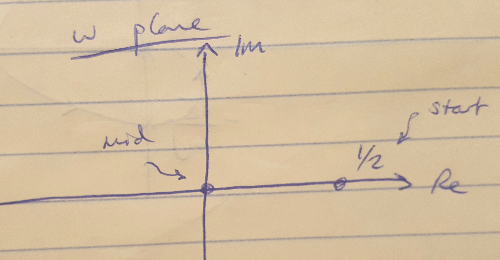 w plane
Im
start
mid
1/2
Re